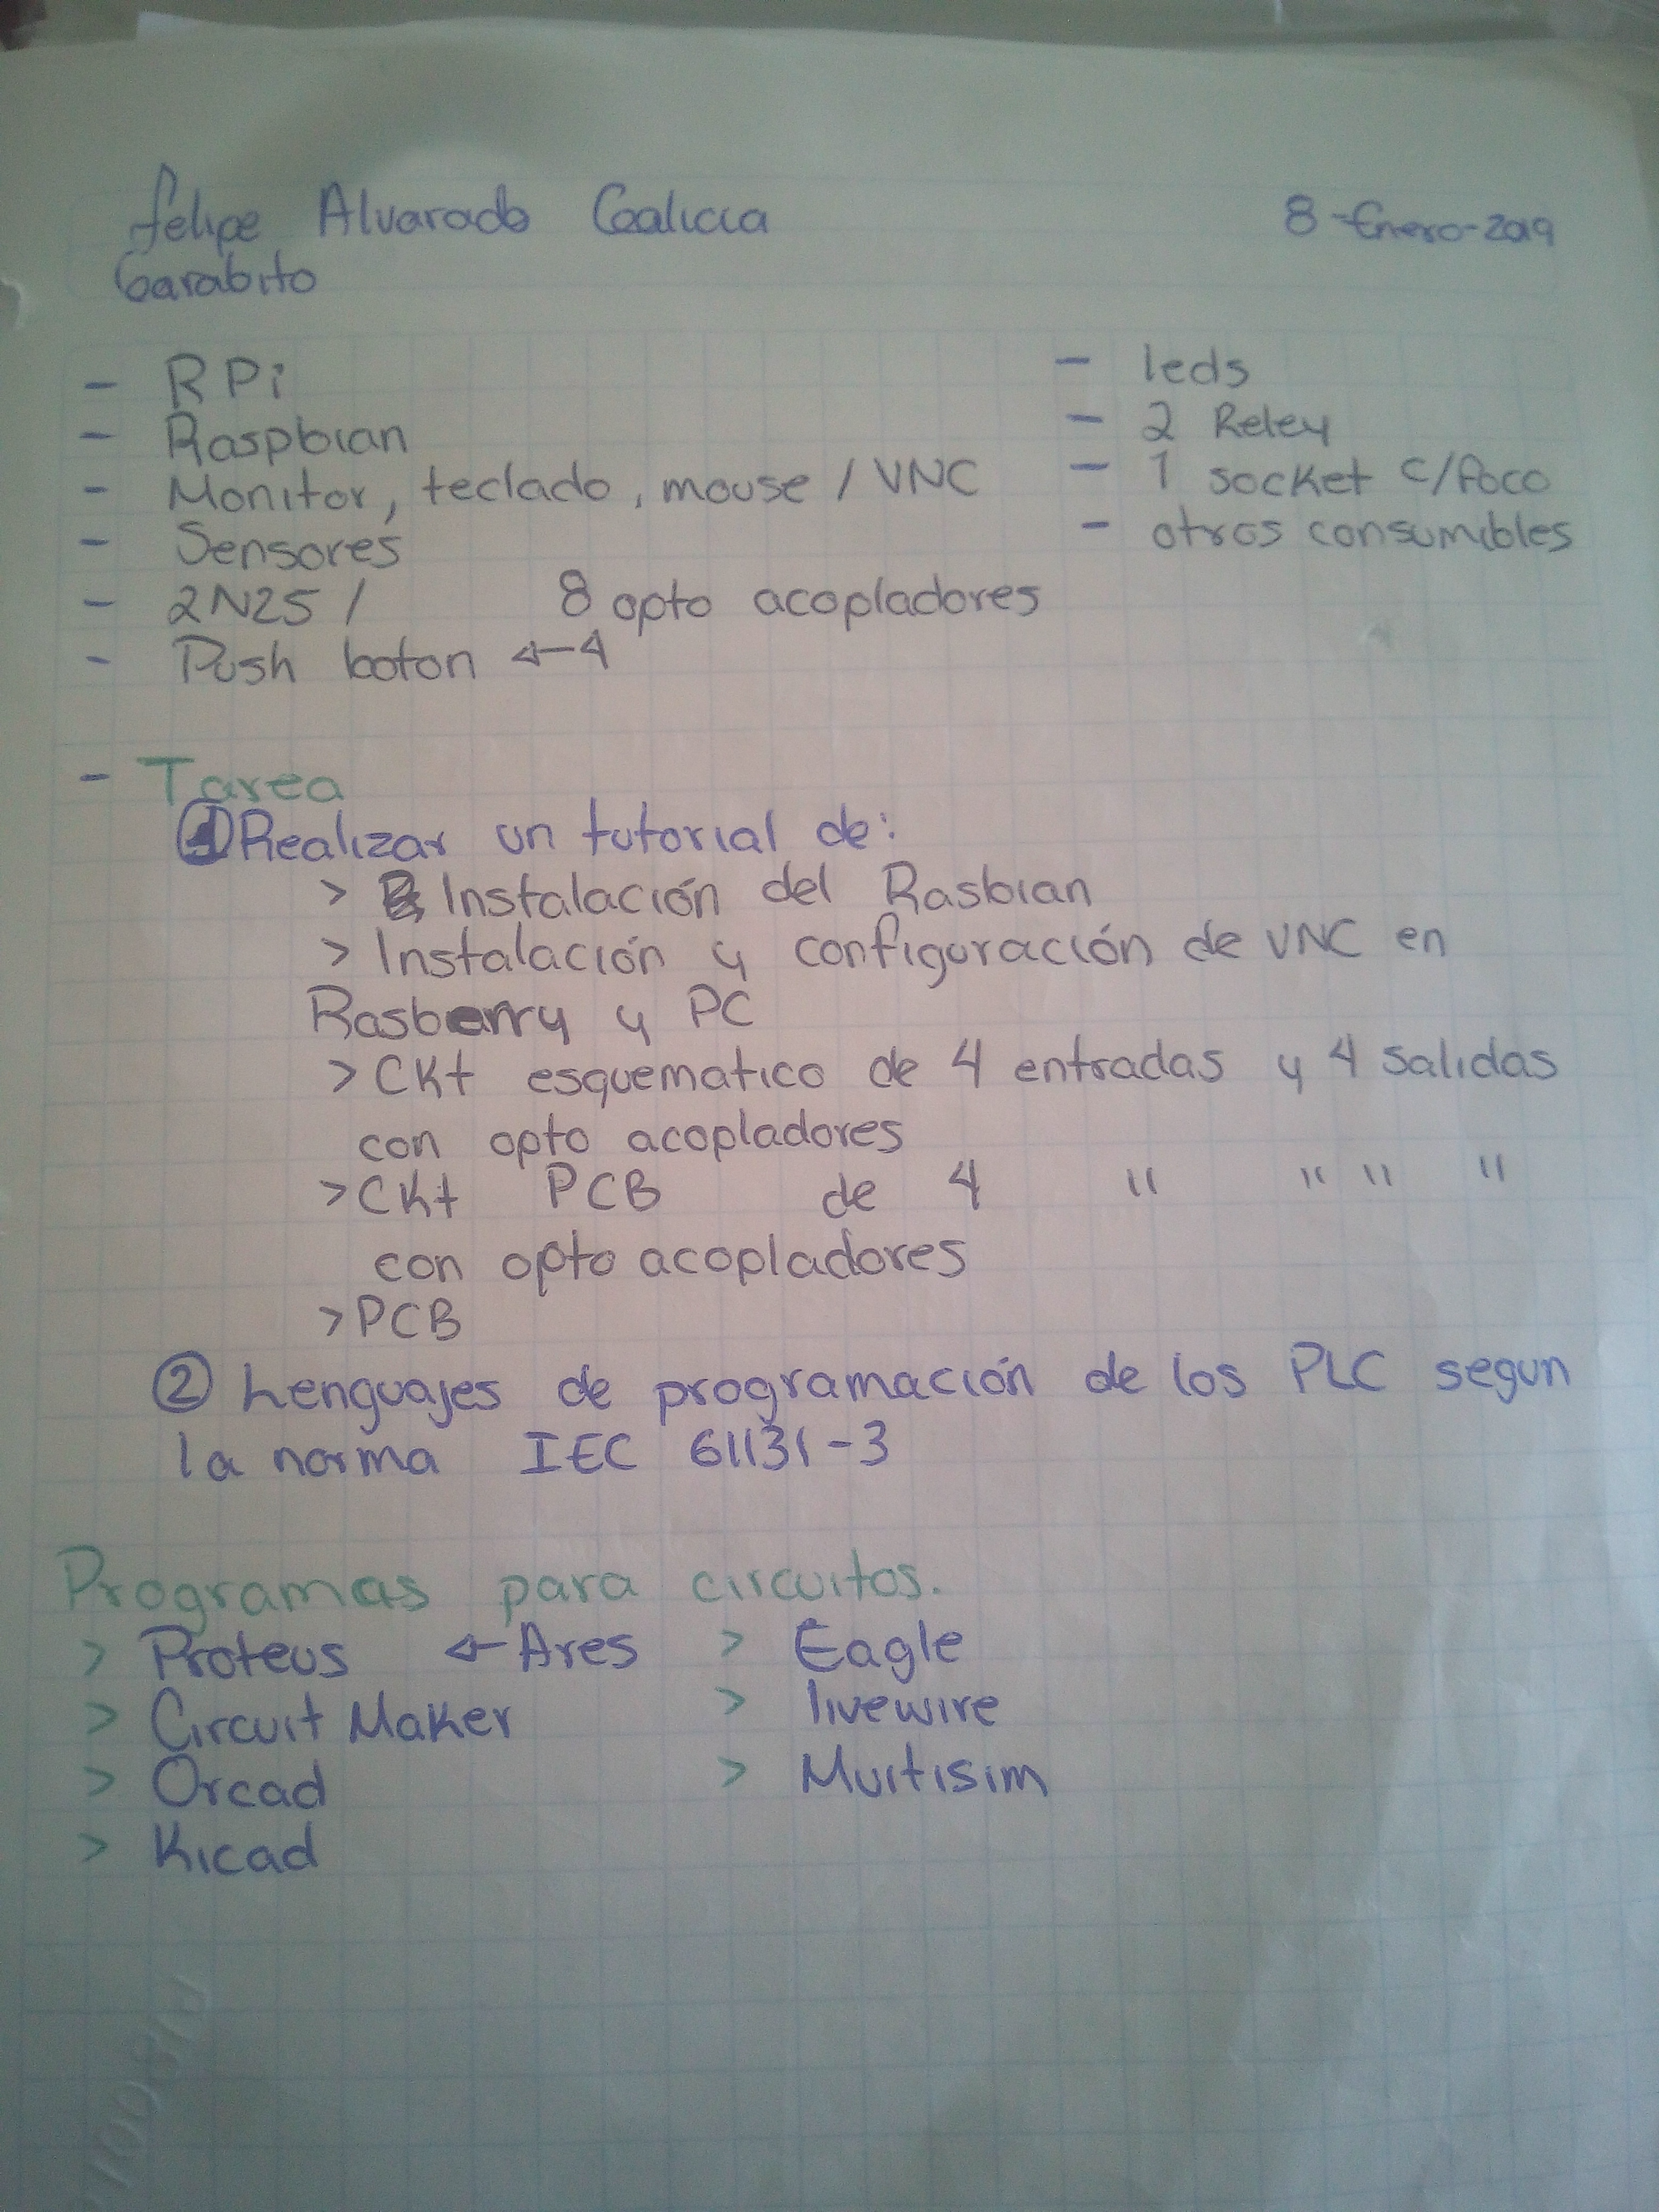 Felipe Alvarado Galicia
8-Enero-2019
Garabito
- RPi
- Raspbian
- Monitor, teclado, mouse / VNC
- Sensores
- 2N25 / 8 opto acopladores
- Push boton ←4
- leds
- 2 Reley
- 1 socket c/foco
- otros consumibles
- Tarea
① Realizar un tutorial de:
> Instalación del Rasbian
> Instalación y configuración de VNC en
Rasberry y PC
> Ckt esquematico de 4 entradas y 4 salidas
con opto acopladores
> Ckt PCB de 4 " " " "
con opto acopladores
> PCB
② Lenguajes de programación de los PLC segun
la norma IEC 61131-3
Programas para circuitos.
> Proteus ← Ares
> Circuit Maker
> Orcad
> Kicad
> Eagle
> livewire
> Multisim